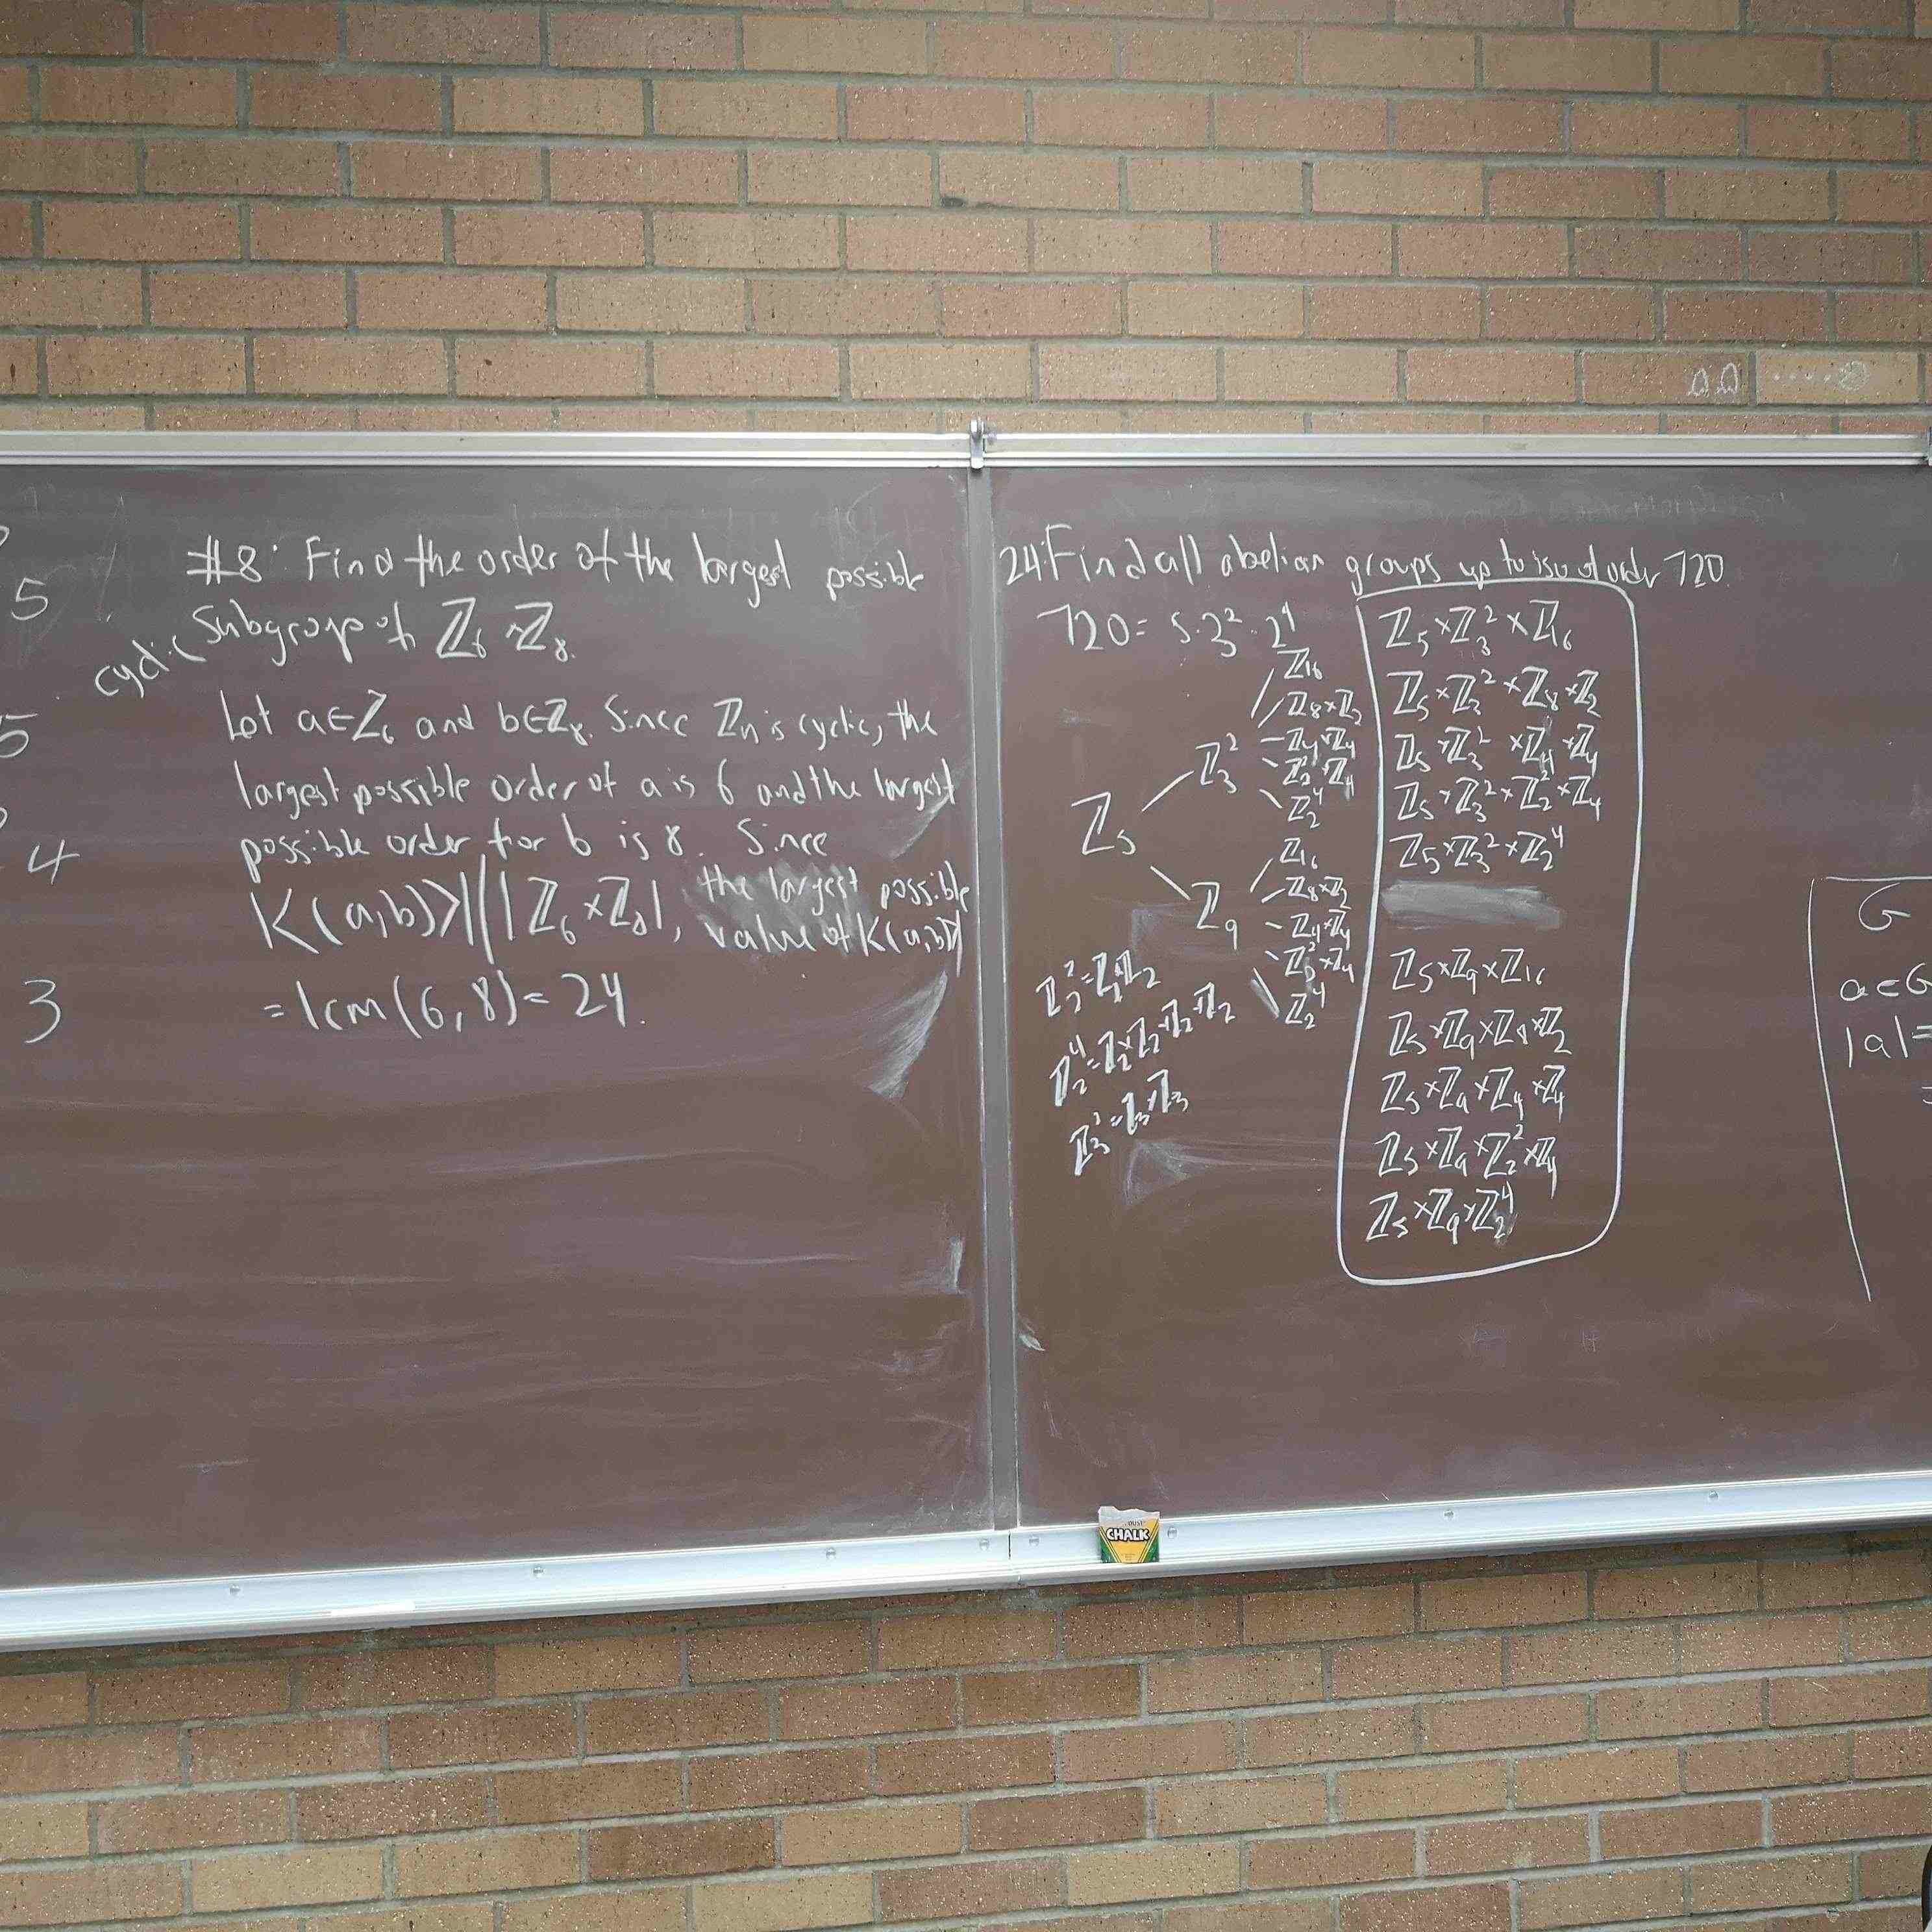 5
5
4
3
#8: Find the order of the largest possible
cyclic subgroup of ℤ₆ × ℤ₈.
Let a∈ℤ₆ and b∈ℤ₈. Since ℤₙ is cyclic, the
largest possible order of a is 6 and the largest
possible order for b is 8. Since
|<(a,b)>| | |ℤ₆ × ℤ₈|, the largest possible
value of |<(a,b)>|
= lcm(6,8) = 24.
24: Find all abelian groups up to iso of order 720.
720 = 5·3²·2⁴
ℤ₅
ℤ₃²
ℤ₁₆
ℤ₈×ℤ₂
ℤ₄×ℤ₄
ℤ₂²×ℤ₄
ℤ₂⁴
ℤ₉
ℤ₁₆
ℤ₈×ℤ₂
ℤ₄×ℤ₄
ℤ₂²×ℤ₄
ℤ₂⁴
ℤ₂²=ℤ₂×ℤ₂
ℤ₂⁴=ℤ₂×ℤ₂×ℤ₂×ℤ₂
ℤ₃²=ℤ₃×ℤ₃
ℤ₅×ℤ₃²×ℤ₁₆
ℤ₅×ℤ₃²×ℤ₈×ℤ₂
ℤ₅×ℤ₃²×ℤ₄×ℤ₄
ℤ₅×ℤ₃²×ℤ₂²×ℤ₄
ℤ₅×ℤ₃²×ℤ₂⁴
ℤ₅×ℤ₉×ℤ₁₆
ℤ₅×ℤ₉×ℤ₈×ℤ₂
ℤ₅×ℤ₉×ℤ₄×ℤ₄
ℤ₅×ℤ₉×ℤ₂²×ℤ₄
ℤ₅×ℤ₉×ℤ₂⁴
G
a∈G
|a|=
=
CHALK